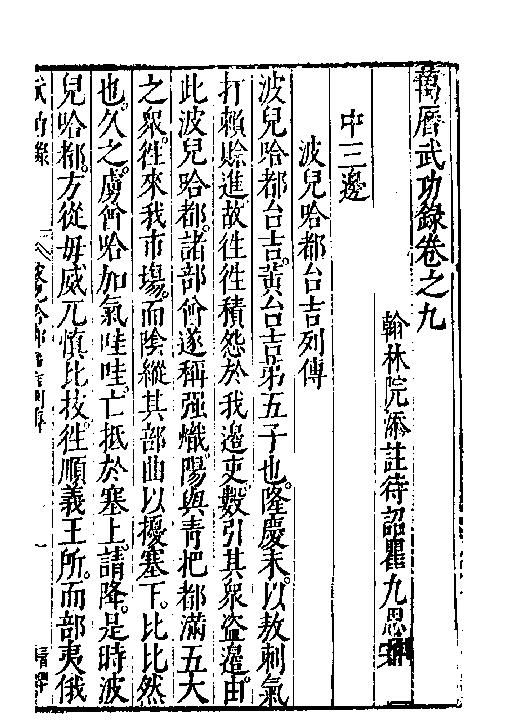 萬曆武功錄卷之九
翰林院添註待詔瞿九思
中三邊
波兒哈都台吉列傳
波兒哈都台吉。黃台吉第五子也。隆慶末。以敖剌氣
打賴賒進故。徃徃積怨於我邊吏。數引其衆盜邊。由
此波兒哈都。諸部酋遂稱强熾。陽與青把都滿五大
之衆。徃來我市塲。而陰縱其部曲以擾塞下。比比然
也。久之。虜酋哈加氣哇哇。亡抵於塞上。請降。是時波
兒哈都。方從毋威兀慎比技。徃順義王所。而部夷俄
武功錄